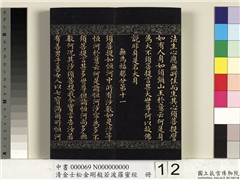 法生心應無所住而生其心須菩提譬
如有人身如須彌山王於意云何是身
為大不須菩提言甚大世尊何以故佛
說非身是名大身
無為福勝分第十一
須菩提如恒河中所有沙數如是沙等
恒河於意云何是諸恒河沙寧為多不
須菩提言甚多世尊但諸恒河尚多無
數何況其沙須菩提我今實言告汝若
有善男子善女人以七寶滿爾所恒河
中書 000069 N000000000
清金士松金剛般若波羅蜜經 冊
12
國立故宮博物院